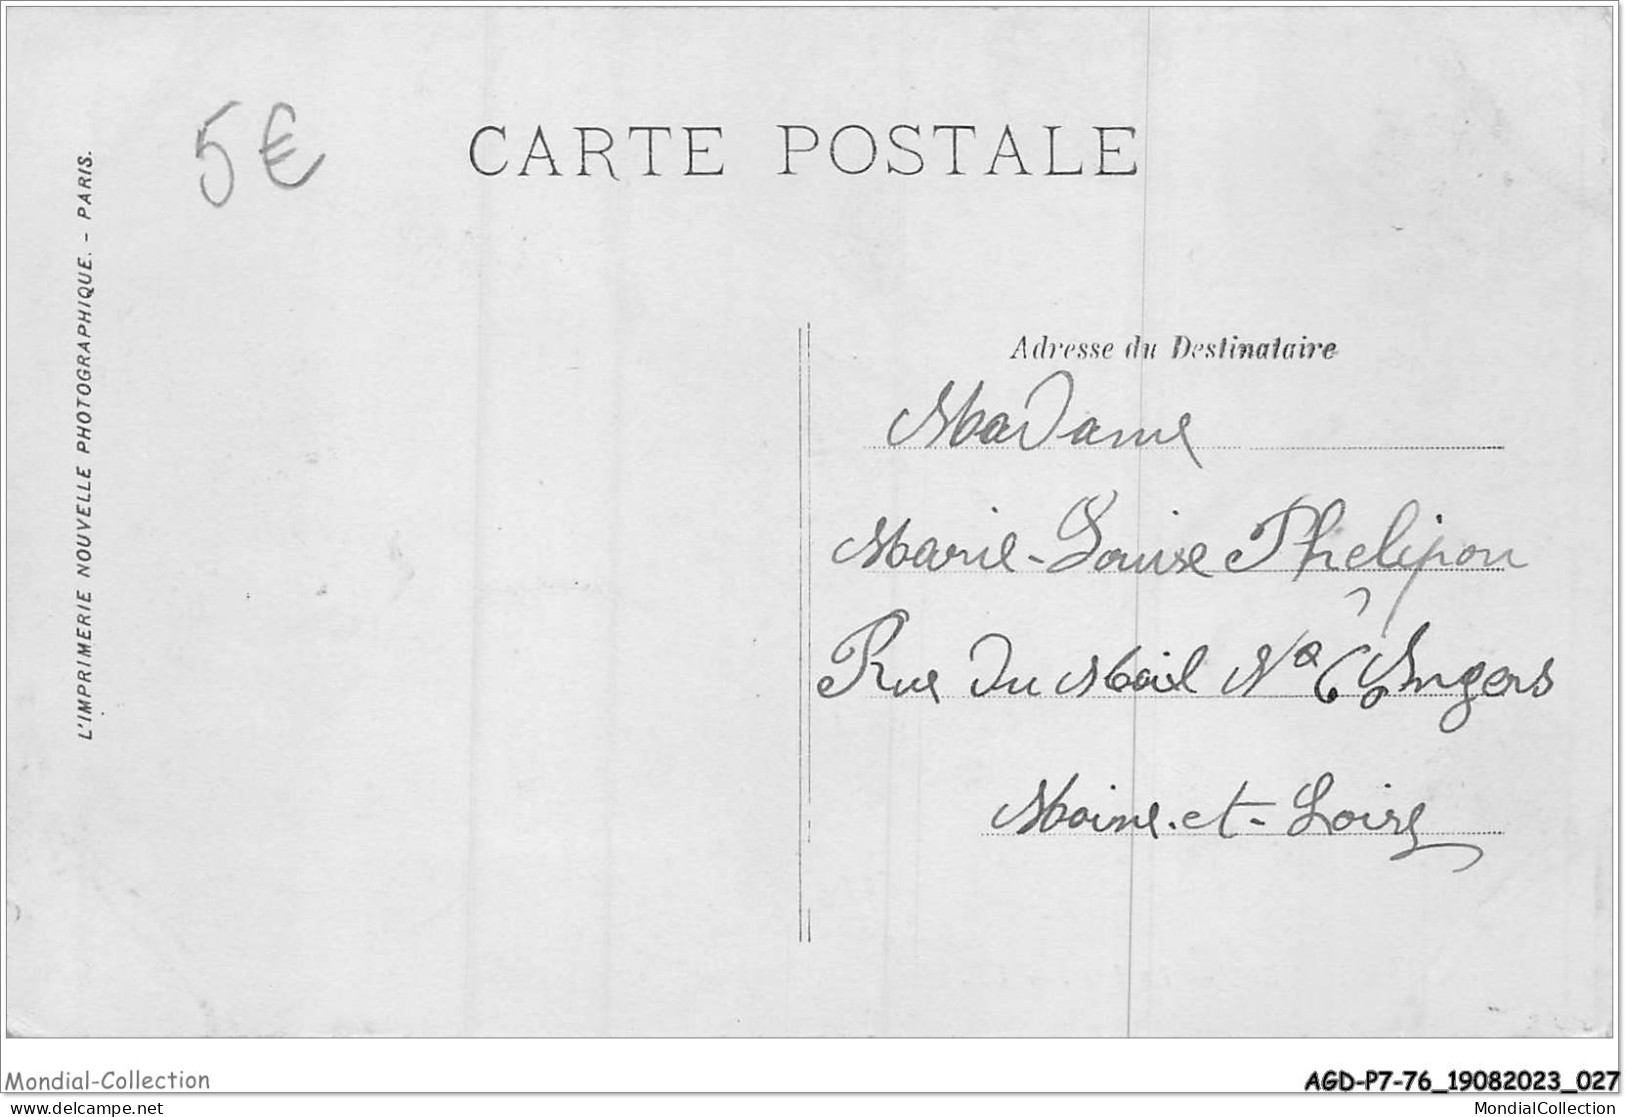 5€
CARTE POSTALE
L'IMPRIMERIE NOUVELLE PHOTOGRAPHIQUE. - PARIS.
Adresse du Destinataire
Madame
Marie-Louise Phelipon
Rue Du Mail Nº 6 Angers
Maine-et-Loire
Mondial-Collection
AGD-P7-76_19082023_027
www.delcampe.net
MondialCollection